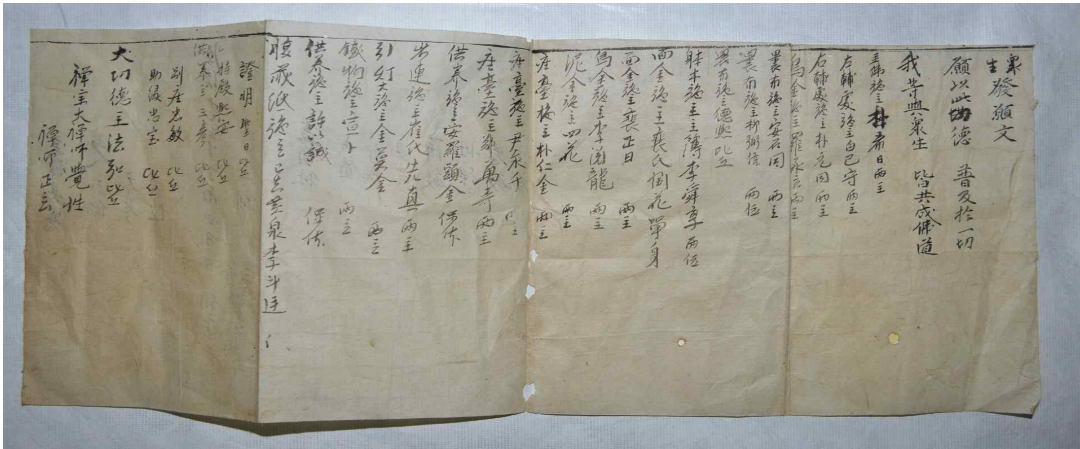 衆生發願文
願以此功德 普及於一切
我等與衆生 皆共成佛道
主佛施主朴希日兩主
左補處施主白已守兩主
右補處施主朴元同兩主
烏金施主羅永言兩主
畏布施主安召同 兩主
畏布施主柳弼信 兩位
畏布施主德熙比丘
體木施主主簿李舜厚兩位
面金施主裵氏 單身
面金施主裵正日 兩主
烏金施主李海龍 兩主
泥金施主四花 兩主
座臺施主朴仁金 兩主
座臺施主尹承千 兩主
座臺施主鄭萬壽兩主
供養施主安羅顯金保体
崔氏先真兩主
引灯大施主金莫金 兩主
鐵物施主宣卜 兩主
供養施主許誠 保体
腹藏紙施主
證明 聖日 比丘
持殿熙安 比丘
供養主三孝 比丘
別座忠敏 比丘
助役忠宝 比丘
大切德主法弘比丘
禪宗大禪師覺性
禪師正玄